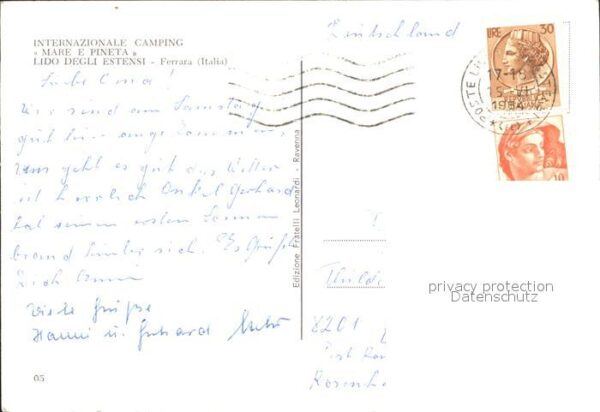 INTERNAZIONALE CAMPING
« MARE E PINETA »
LIDO DEGLI ESTENSI - Ferrara (Italia)
Liebe Oma!
Wir sind am Samstag
gut hier angekommen,
uns geht es gut das Wetter
ist herrlich Onkel Gerhard
hat seinen ersten Sonnen
brand hinter sich. Es Grüßt
Dich
Viele Grüße
Hanni u. Gerhard
05
Edizione Fratelli Leonardi - Ravenna
Deutschland
LIRE 30
POSTE
17-18
15
1964
10
8201
Rosenhe
privacy protection
Datenschutz